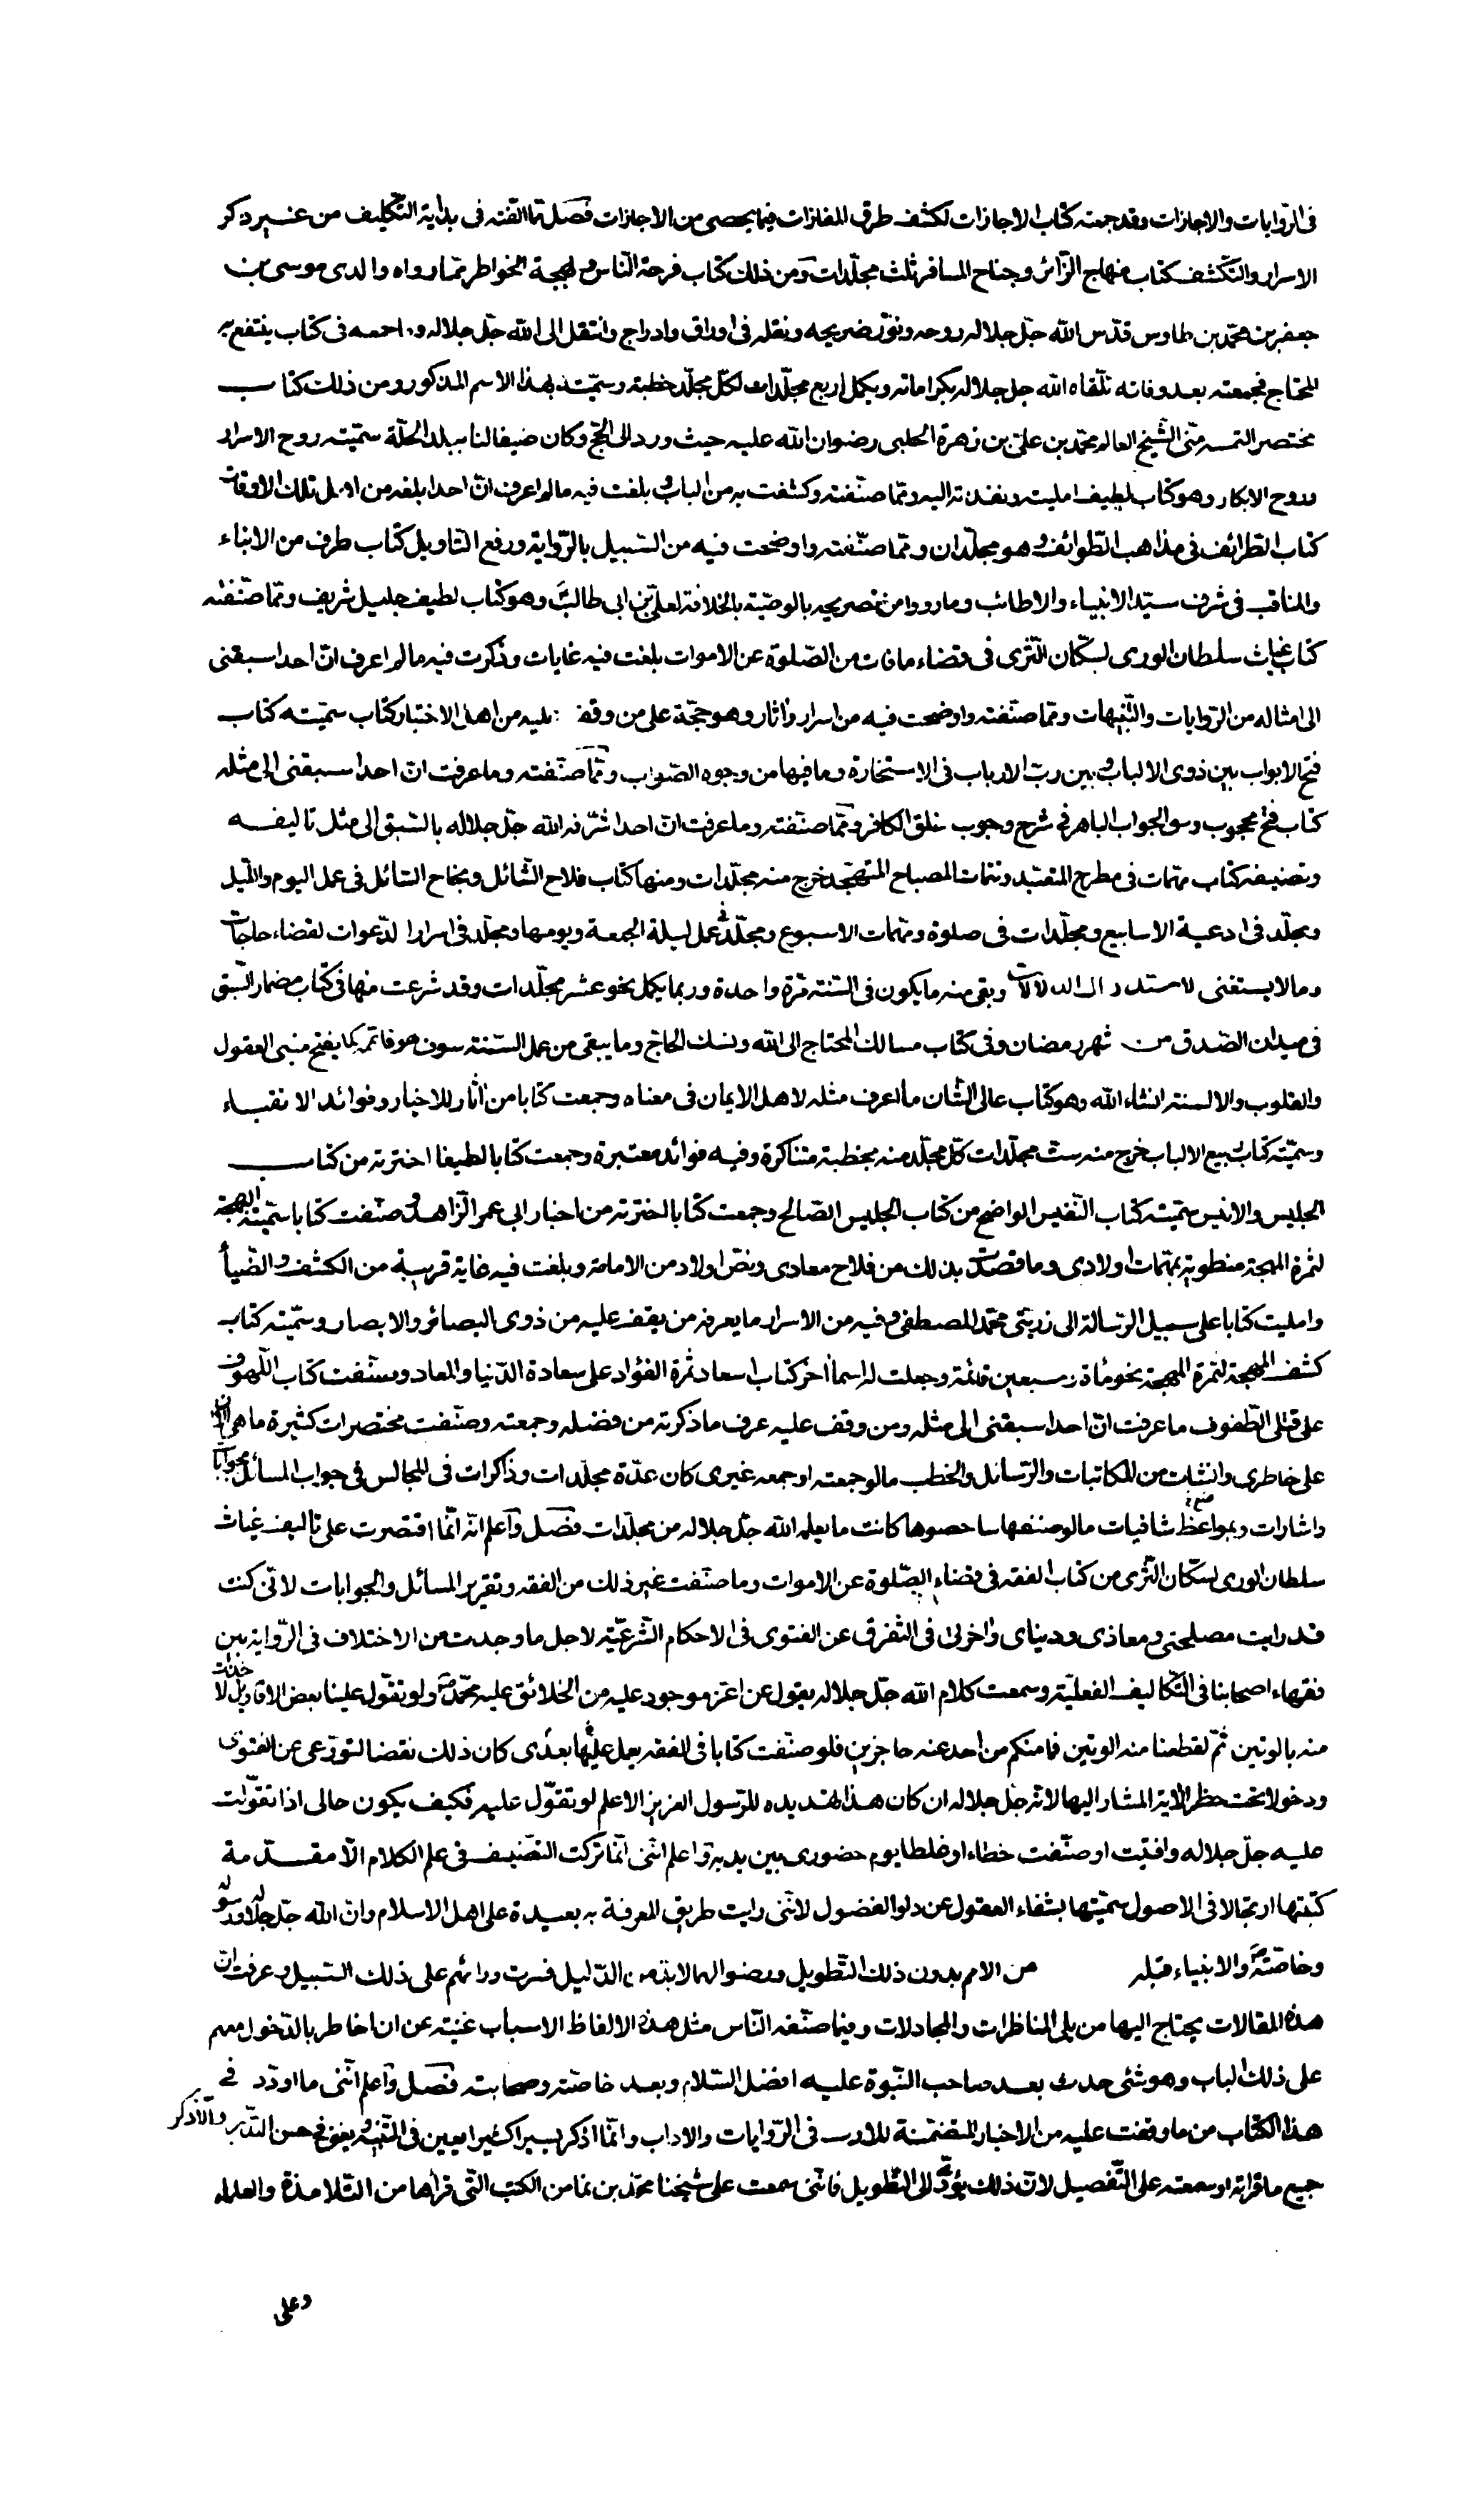 فى الروايات والاجازات وقد جمعته كتاب الاجازات لكشف طرق المفازات فيما يحصى من الاجازات فصل مما الّفته فى بداية التكليف من غير ذكر
الاسرار والتكشف كتاب منهاج الزائر وجناح المسافر ثلث مجلّدات ومن ذلك كتاب فرحة الناس وبهجة الخواطر ممّا رواه والدى موسى بن
جعفر بن محمّد بن طاوس قدّس الله جلّ جلاله روحه ونوّر ضريحه ونقله فى اوراق وادراج وانتقل الى الله جلّ جلاله وما جمعه فى كتاب ينتفع به
المحتاج فجمعته بعد وفاته تلقاه الله جل جلاله بكراماته ويكمل اربع مجلّدات لكلّ مجلّد خطبة وسمّيته بهذا الاسم المذكور ومن ذلك كتاب
مختصر التمسه منّى الشيخ العالم محمّد بن علىّ بن زهرة الحلبى رضوان الله عليه حيث ورد الى الحجّ وكان ضيفا لنا ببلد الحلّة سمّيته روح الاسرار
وروح الابكار وهو كتاب لطيف امليته ونفذته اليه وممّا صنّفته وكشفت به من الباب وبلغت فيه ما لم اعرف انّ احدا بلغه من اهل تلك الاوقات
كتاب الطرائف فى مذاهب الطوائف وهو مجلّدان وممّا صنّفته واوضحت فيه من السبيل بالرّواية ورفع التاويل كتاب طرف من الانباء
والمناقب فى شرف سيّد الانبياء والاطائب وما رووا من تصريحه بالوصيّة بالخلافة لعلىّ بن ابى طالب وهو كتاب لطيف جليل شريف وممّا صنّفته
كتاب غياث سلطان الورى لسكّان الثرى فى قضاء ما فات من الصّلوة عن الاموات بلغت فيه غايات وذكرت فيه ما لم اعرف انّ احدا سبقنى
الى امثاله من الرّوايات والتّنبيهات وممّا صنّفته واوضحت فيه من اسرار واثار وهو حجّة على من وقف عليه من اهل الاختبار كتاب سمّيته كتاب
فتح الابواب بين ذوى الالباب وبين ربّ الارباب فى الاستخارة وما فيها من وجوه الصّواب وممّا صنّفته وما عرفت انّ احدا سبقنى الى مثله
كتاب فتح محجوب الجواب الباهر فى شرح وجوب خلق الكافر وممّا صنّفته وما عرفت انّ احدا شرّفه الله جلّ جلاله بالسّبق الى مثل تاليفه
وتصنيفه كتاب مهمّات فى المتعبّد وتتمّات المصباح المتهجّد خرج منه مجلّدات ومنها كتاب فلاح السّائل ونجاح السائل فى عمل اليوم والليل
ومجلّد فى ادعية الاسابيع ومجلّدات فى صلوة ومهمّات الاسبوع ومجلّد فى عمل ليلة الجمعة ويومها ومجلّد فى اسرار الدّعوات لقضاء حاجات
وما لا يستغنى وبقى منه ما يكون فى السّنة مرّة واحدة وربما يكمل نحو عشر مجلّدات وقد شرعت منها فى كتاب مضمار السّبق
فى ميدان الصّدق من شهر رمضان وفى كتاب مسالك المحتاج الى الله ونسك الحاج وما يبقى من عمل السّنة العقول
والقلوب والالسنة انشاء الله وهو كتاب عالى الشّان ما اعرف مثله لاهل الايمان فى معناه وجمعت كتابا من اثار الاخيار وفوائد الاتقياء
وسمّيته كتاب ربيع الالباب خرج منه ستّ مجلّدات كلّ مجلّد منه بخطبة وفيه فوائد معتبرة وجمعت كتابا لطيفا اخترته من كتاب
الجليس والانيس سمّيته كتاب النّفيس الواضح من كتاب الجليس الصّالح وجمعت كتابا اخترته من اخبار ابى عمر الزاهد وصنّفت كتابا سمّيته البهجة
لثمرة المهجة منطوية بمهمّات اولادى وما قصدت بذلك من فلاح معادى وبلغت فيه غاية قريبة من الكشف والضّياء
وامليت كتابا على سبيل الرّسالة الى ذرّيتى محمّد المصطفى وفيه من الاسرار ما يعرفه من يقف عليه من ذوى البصائر والابصار وسمّيته كتاب
كشف المحجة لثمرة المهجة نحو مأة سبعين قائمة وجعلت له اسما اخر كتاب اسعاد ثمرة الفؤاد على سعادة الدّنيا والمعاد وصنّفت كتاب اللّهوف
على قتلى الطّفوف ما عرفت انّ احدا سبقنى الى مثله ومن وقف عليه عرف ما ذكرته من فضله وجمعته وصنّفت مختصرات كثيرة ما هى الان
على خاطرى وانشات من المكاتبات والرّسائل والخطب ما لو جمعته او جمعه غيرى كان عدّة مجلّدات وذاكرات فى المجالس فى جواب المسائل بجوابات
واشارات وبمواعظ شافيات ما لو صنّفها سامعوها كانت ما يعلمه الله جلّ جلاله من مجلّدات فصل واعلم انّه انّما اقتصرت على تاليف غياث
سلطان الورى لسكّان الثّرى من كتاب الفقه فى قضاء الصّلوة عن الاموات وما صنّفت غير ذلك من الفقه وتقرير المسائل والجوابات لانّى كنت
قد رايت مصلحتى ومعاذى ودنياى واخرتى فى التفرق عن الفتوى فى الاحكام الشّرعيّة لاجل ما وجدت من الاختلاف فى الرّواية بين
فقهاء اصحابنا فى التّكاليف الفعليّة وسمعت كلام الله جلّ جلاله يقول عن اعز موجود عليه من الخلائق عليه محمّد ص ولو تقوّل علينا بعض الاقاويل لاخذنا
منه باليمين ثمّ لقطعنا منه الوتين فما منكم من احد عنه حاجزين فلو صنّفت كتابا فى الفقه يعمل عليها بعدى كان ذلك نقضا لتورّعى عن الفتوى
ودخولا تحت حظر الاية المشار اليها لانّه جلّ جلاله ان كان هذا تهديده للرّسول العزيز الاعلم لو تقوّل عليه فكيف يكون حالى اذا تقوّلت
عليه جلّ جلاله وافتيت او صنّفت خطاء او غلطا يوم حضورى بين يديه واعلم انّنى انّما تركت التصنيف فى علم الكلام الّا مقدّمة
كتبتها ارتجالا فى الاصول سمّيتها بشفاء العقول عن داء الفضول لانّنى رايت طريق المعرفة به بعيدة على اهل الاسلام وانّ الله جلّ جلاله ورسوله
وخاصّته ص والانبياء قبله من الامم بدون ذلك التّطويل ورضوا بما لا بدّ من الدّليل فسرت ورائهم على ذلك السّبيل وعرفت انّ
هذه المقالات يحتاج اليها من يلى المناظرات والمجادلات وفيما صنّفه النّاس مثل هذه الالفاظ الاسباب غنية عن ان اخاطر بالدّخول معهم
على ذلك الباب وهو شئ حدث بعد صاحب النّبوة عليه افضل السّلام وبعد خاصّته وصحابته فصل واعلم انّنى ما اورد فى
هذا الكتاب من ما وقفت عليه من الاخبار المتضمّنة فى الرّوايات والاداب وانّما اذكر يسيرا كثيرا يعين فى التّنبيه حسن التّدبّر والّا اذكر
جميع ما قراته او سمعته على التّفصيل لانّ ذلك يؤدّى الى التّطويل فانّنى سمعت على شيخنا محمّد بن نما من الكتب التّى قرأها من التّلامذة والعلماء
وعلى